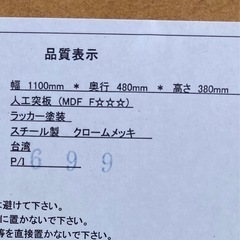 品質表示
幅 1100mm * 奥行 480mm * 高さ 380mm
人工突板（MDF F☆☆☆）
ラッカー塗装
スチール製 クロームメッキ
台湾
P/I 699
は避けて下さい。
に置かないで下さい。
等を直接置かないで下さい